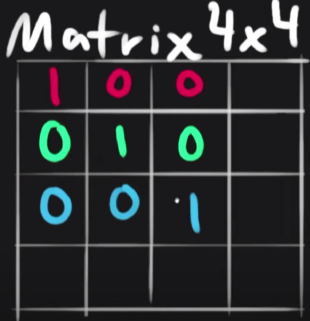 Matrix4x4
1 0 0
0 1 0
0 0 1